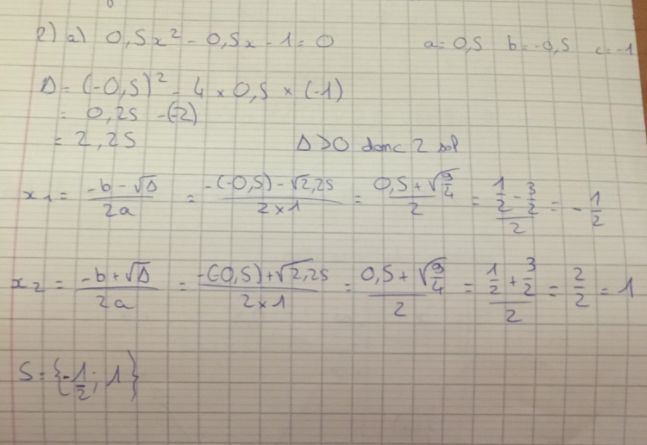 2) a) 0,5x² - 0,5x - 1 = 0 a = 0,5 b = -0,5 c = -1
Δ = (-0,5)² - 4 × 0,5 × (-1)
= 0,25 - (-2)
= 2,25 Δ > 0 donc 2 sol
x₁ = (-b - √Δ)/(2a) = (-(-0,5) - √2,25)/(2 × 1) = (0,5 + √(9/4))/2 = (1/2 - 3/2)/2 = -1/2
x₂ = (-b + √Δ)/(2a) = (-(-0,5) + √2,25)/(2 × 1) = (0,5 + √(9/4))/2 = (1/2 + 3/2)/2 = 2/2 = 1
S = {-1/2 ; 1}